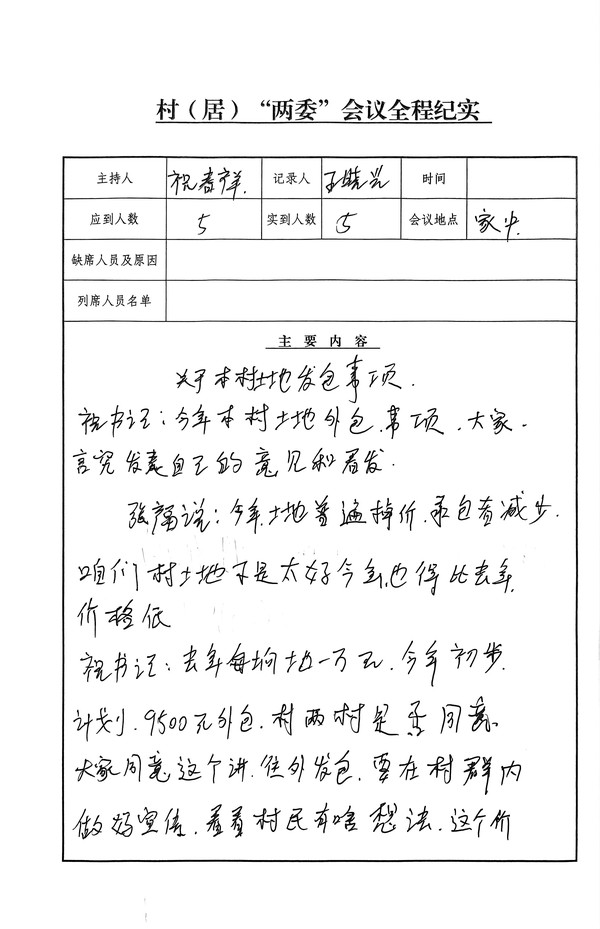 村（居）“两委”会议全程纪实
主持人 祝春祥 记录人 王晓兰 时间
应到人数 5 实到人数 5 会议地点 家中
缺席人员及原因
列席人员名单
主要内容
关于本村土地发包事项.
祝书记：今年本村土地外包.事项.大家.
言究发表自己的意见和看发.
张福说：今年.土地普遍掉价.承包者减少.
咱们村土地不是太好今年也得比去年
价格低
祝书记：去年每垧地一万元.今年初步.
计划.9500元外包.村两村是否同意.
大家同意这个讲.往外发包.要在村群内
做好宣传.看看村民有啥想法.这个价